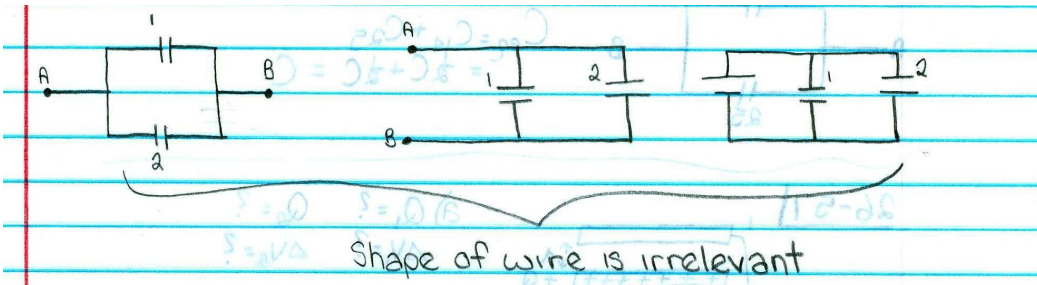 1
A B
2
A
1 2
B
1 2
Shape of wire is irrelevant